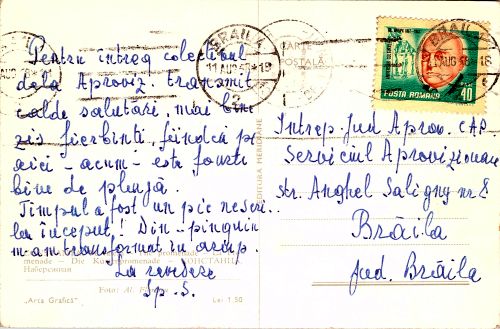 Pentru întreg colectivul
dela Aproviz. transmit
calde salutări, mai bine
zis fierbinți, fiindcă pe
aici - acum - este foarte
bine de plajă.
Timpul a fost un pic neseri..
la început! Din pinguin
m-am transformat în arap.
La revedere
Sp. S.
menade — Die Kurpromenade — КОНСТАНЦА
Набережная
Foto: Al.
„Arta Grafică”
Lei 1.50
EDITURA MERIDIANE
BRĂILA
11 AUG 68-18
CARTE
POȘTALĂ
BRĂILA
AUG 68-18
POSTA ROMANA
40
Întrep. Jud Aprov. CAP.
Serviciul Aprovizionare
str. Anghel Saligny nr 8
Brăila
Jud. Brăila